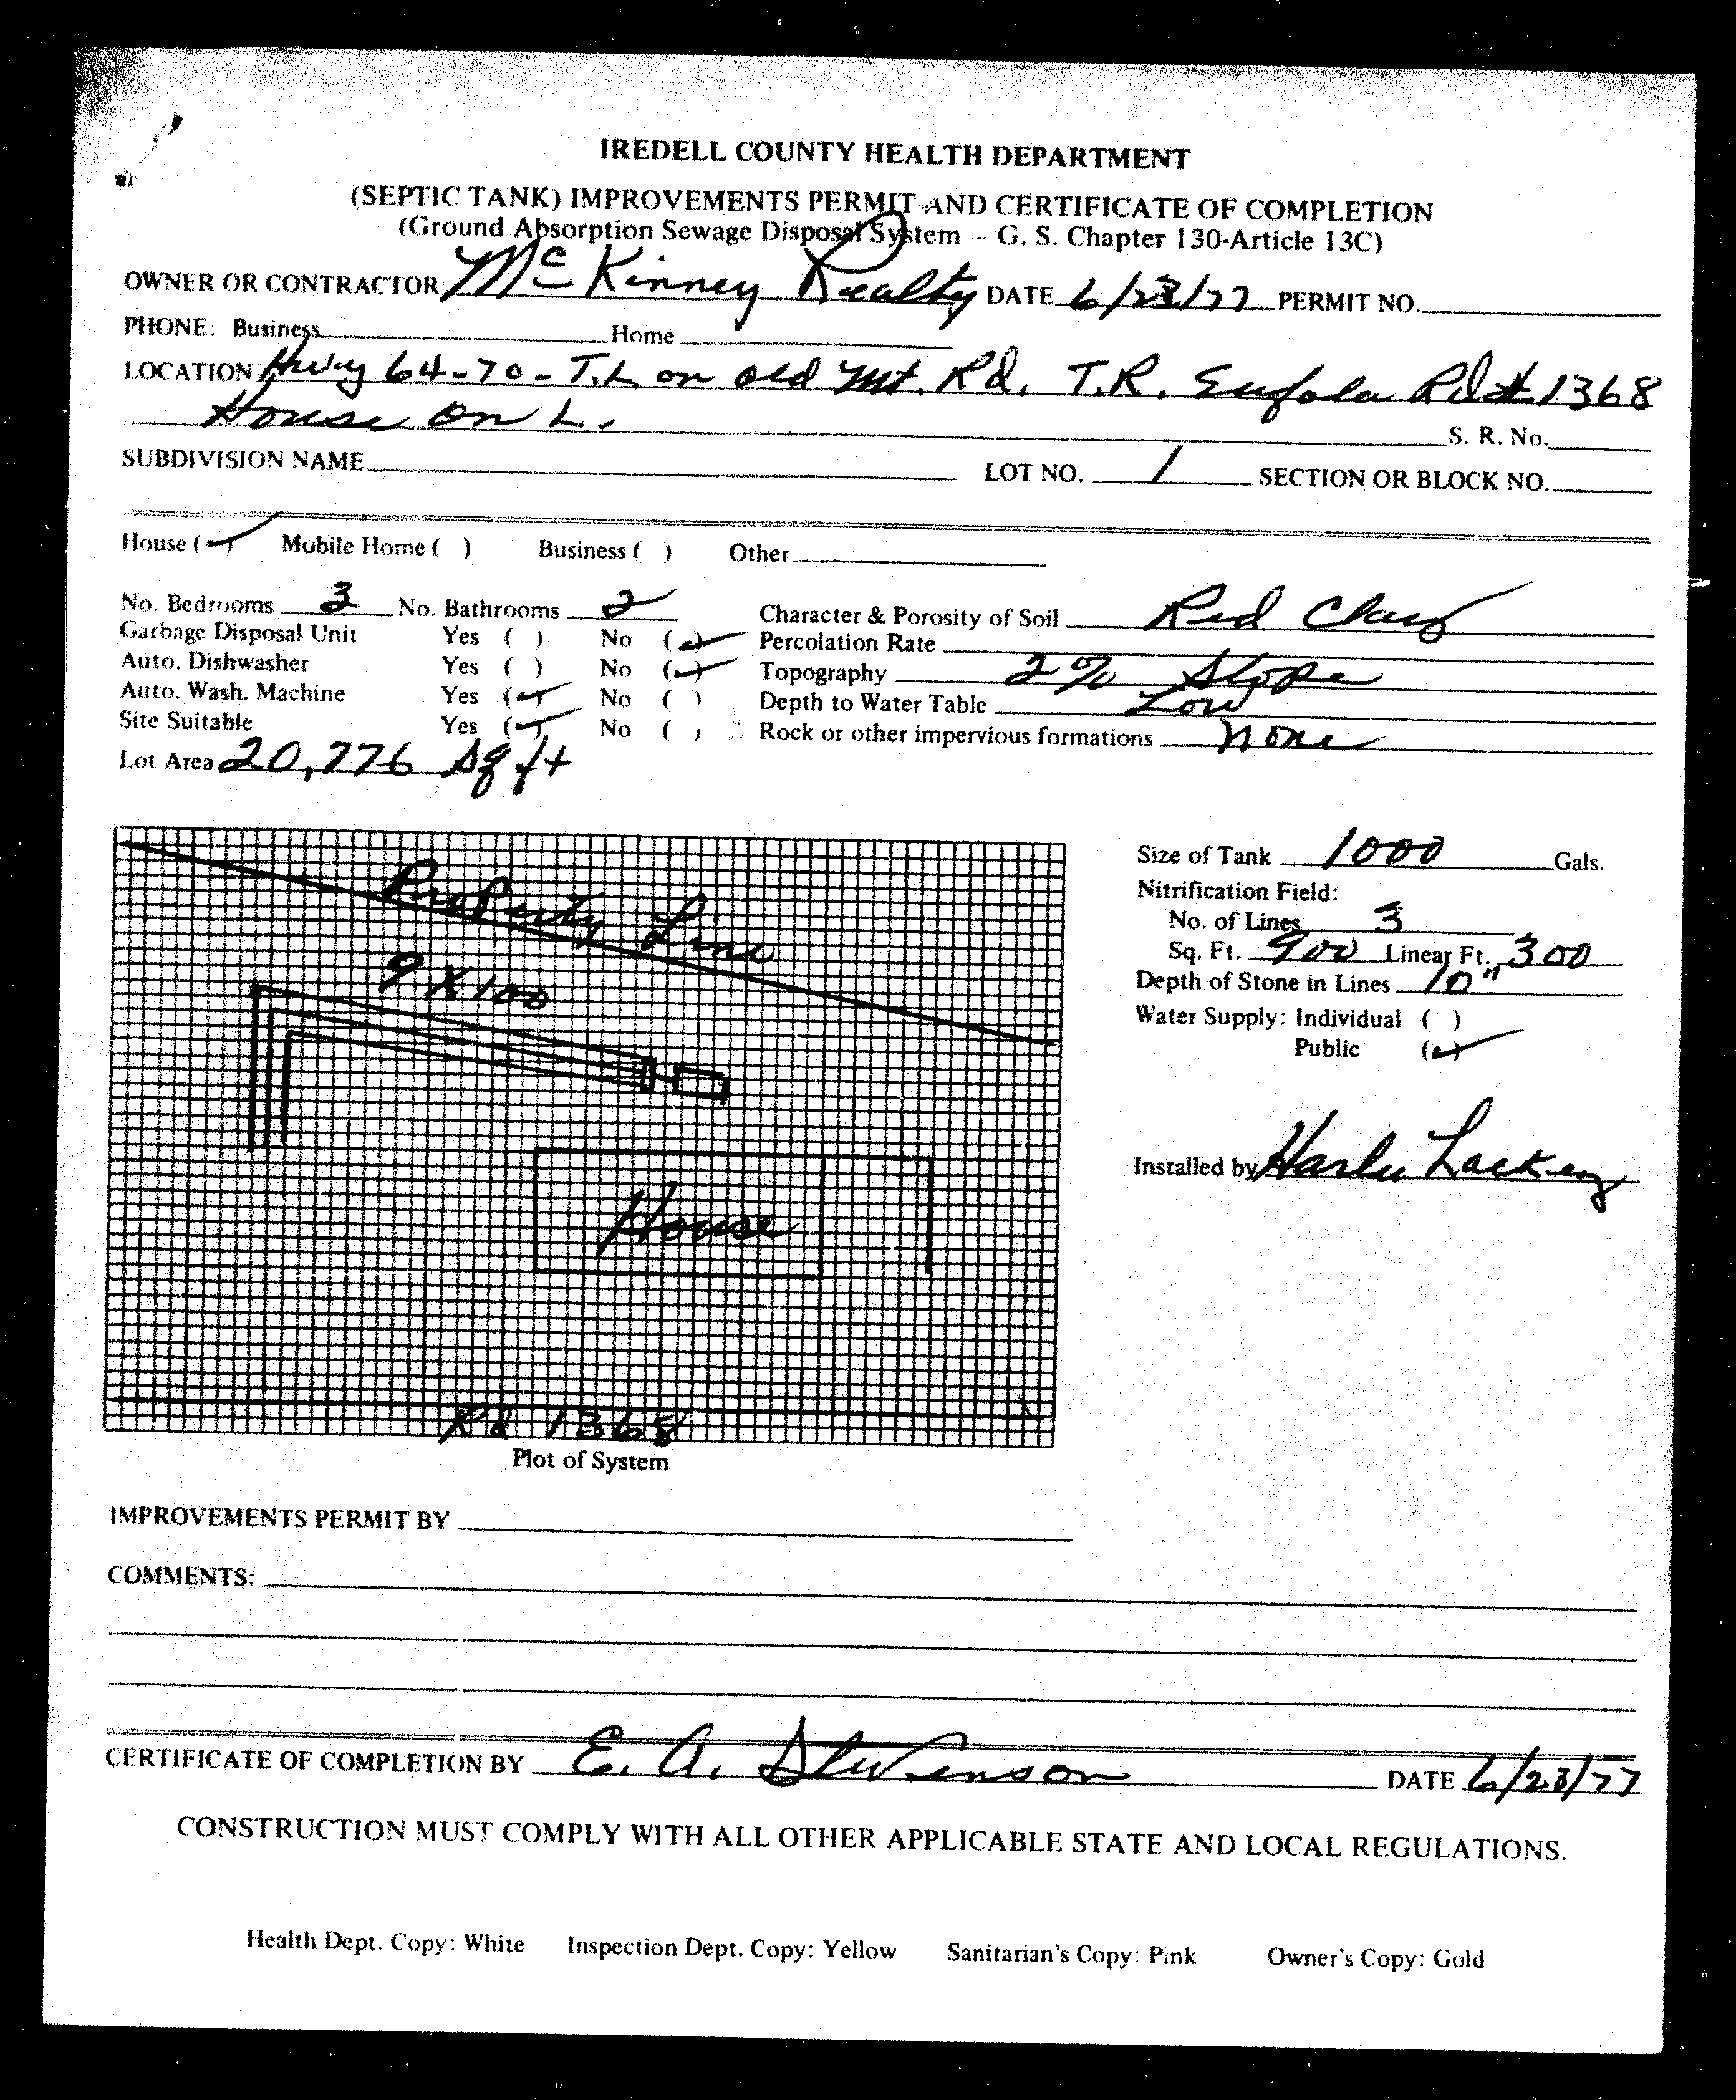 IREDELL COUNTY HEALTH DEPARTMENT
(SEPTIC TANK) IMPROVEMENTS PERMIT AND CERTIFICATE OF COMPLETION
(Ground Absorption Sewage Disposal System – G. S. Chapter 130-Article 13C)
OWNER OR CONTRACTOR McKinney Realty DATE 6/23/77 PERMIT NO.
PHONE: Business Home
LOCATION Hwy 64-70 - T.L on old Mt. Rd. T.R. Eufola Rd # 1368
House on L.
S. R. No.
SUBDIVISION NAME LOT NO. 1 SECTION OR BLOCK NO.
House (✓) Mobile Home ( ) Business ( ) Other
No. Bedrooms 3 No. Bathrooms 2 Character & Porosity of Soil Red Clay
Garbage Disposal Unit Yes ( ) No (✓) Percolation Rate
Auto. Dishwasher Yes ( ) No (✓) Topography 2% Slope
Auto. Wash. Machine Yes (✓) No ( ) Depth to Water Table Low
Site Suitable Yes (✓) No ( ) Rock or other impervious formations none
Lot Area 20,776 Sq ft
Property Line
9 X 100
House
Rd 1368
Plot of System
Size of Tank 1000 Gals.
Nitrification Field:
No. of Lines 3
Sq. Ft. 900 Linear Ft. 300
Depth of Stone in Lines 10"
Water Supply: Individual ( )
Public (✓)
Installed by Lackey
IMPROVEMENTS PERMIT BY
COMMENTS:
CERTIFICATE OF COMPLETION BY E. A. Stevenson DATE 6/23/77
CONSTRUCTION MUST COMPLY WITH ALL OTHER APPLICABLE STATE AND LOCAL REGULATIONS.
Health Dept. Copy: White Inspection Dept. Copy: Yellow Sanitarian's Copy: Pink Owner's Copy: Gold